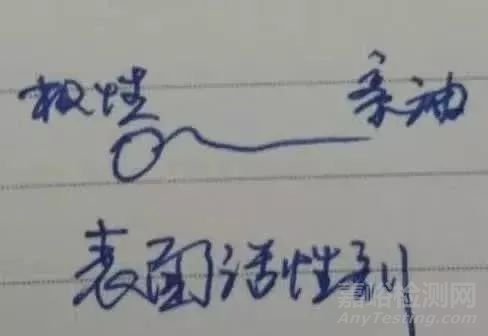 极性 亲油
表面活性剂
嘉峪检测网
AnyTesting.com